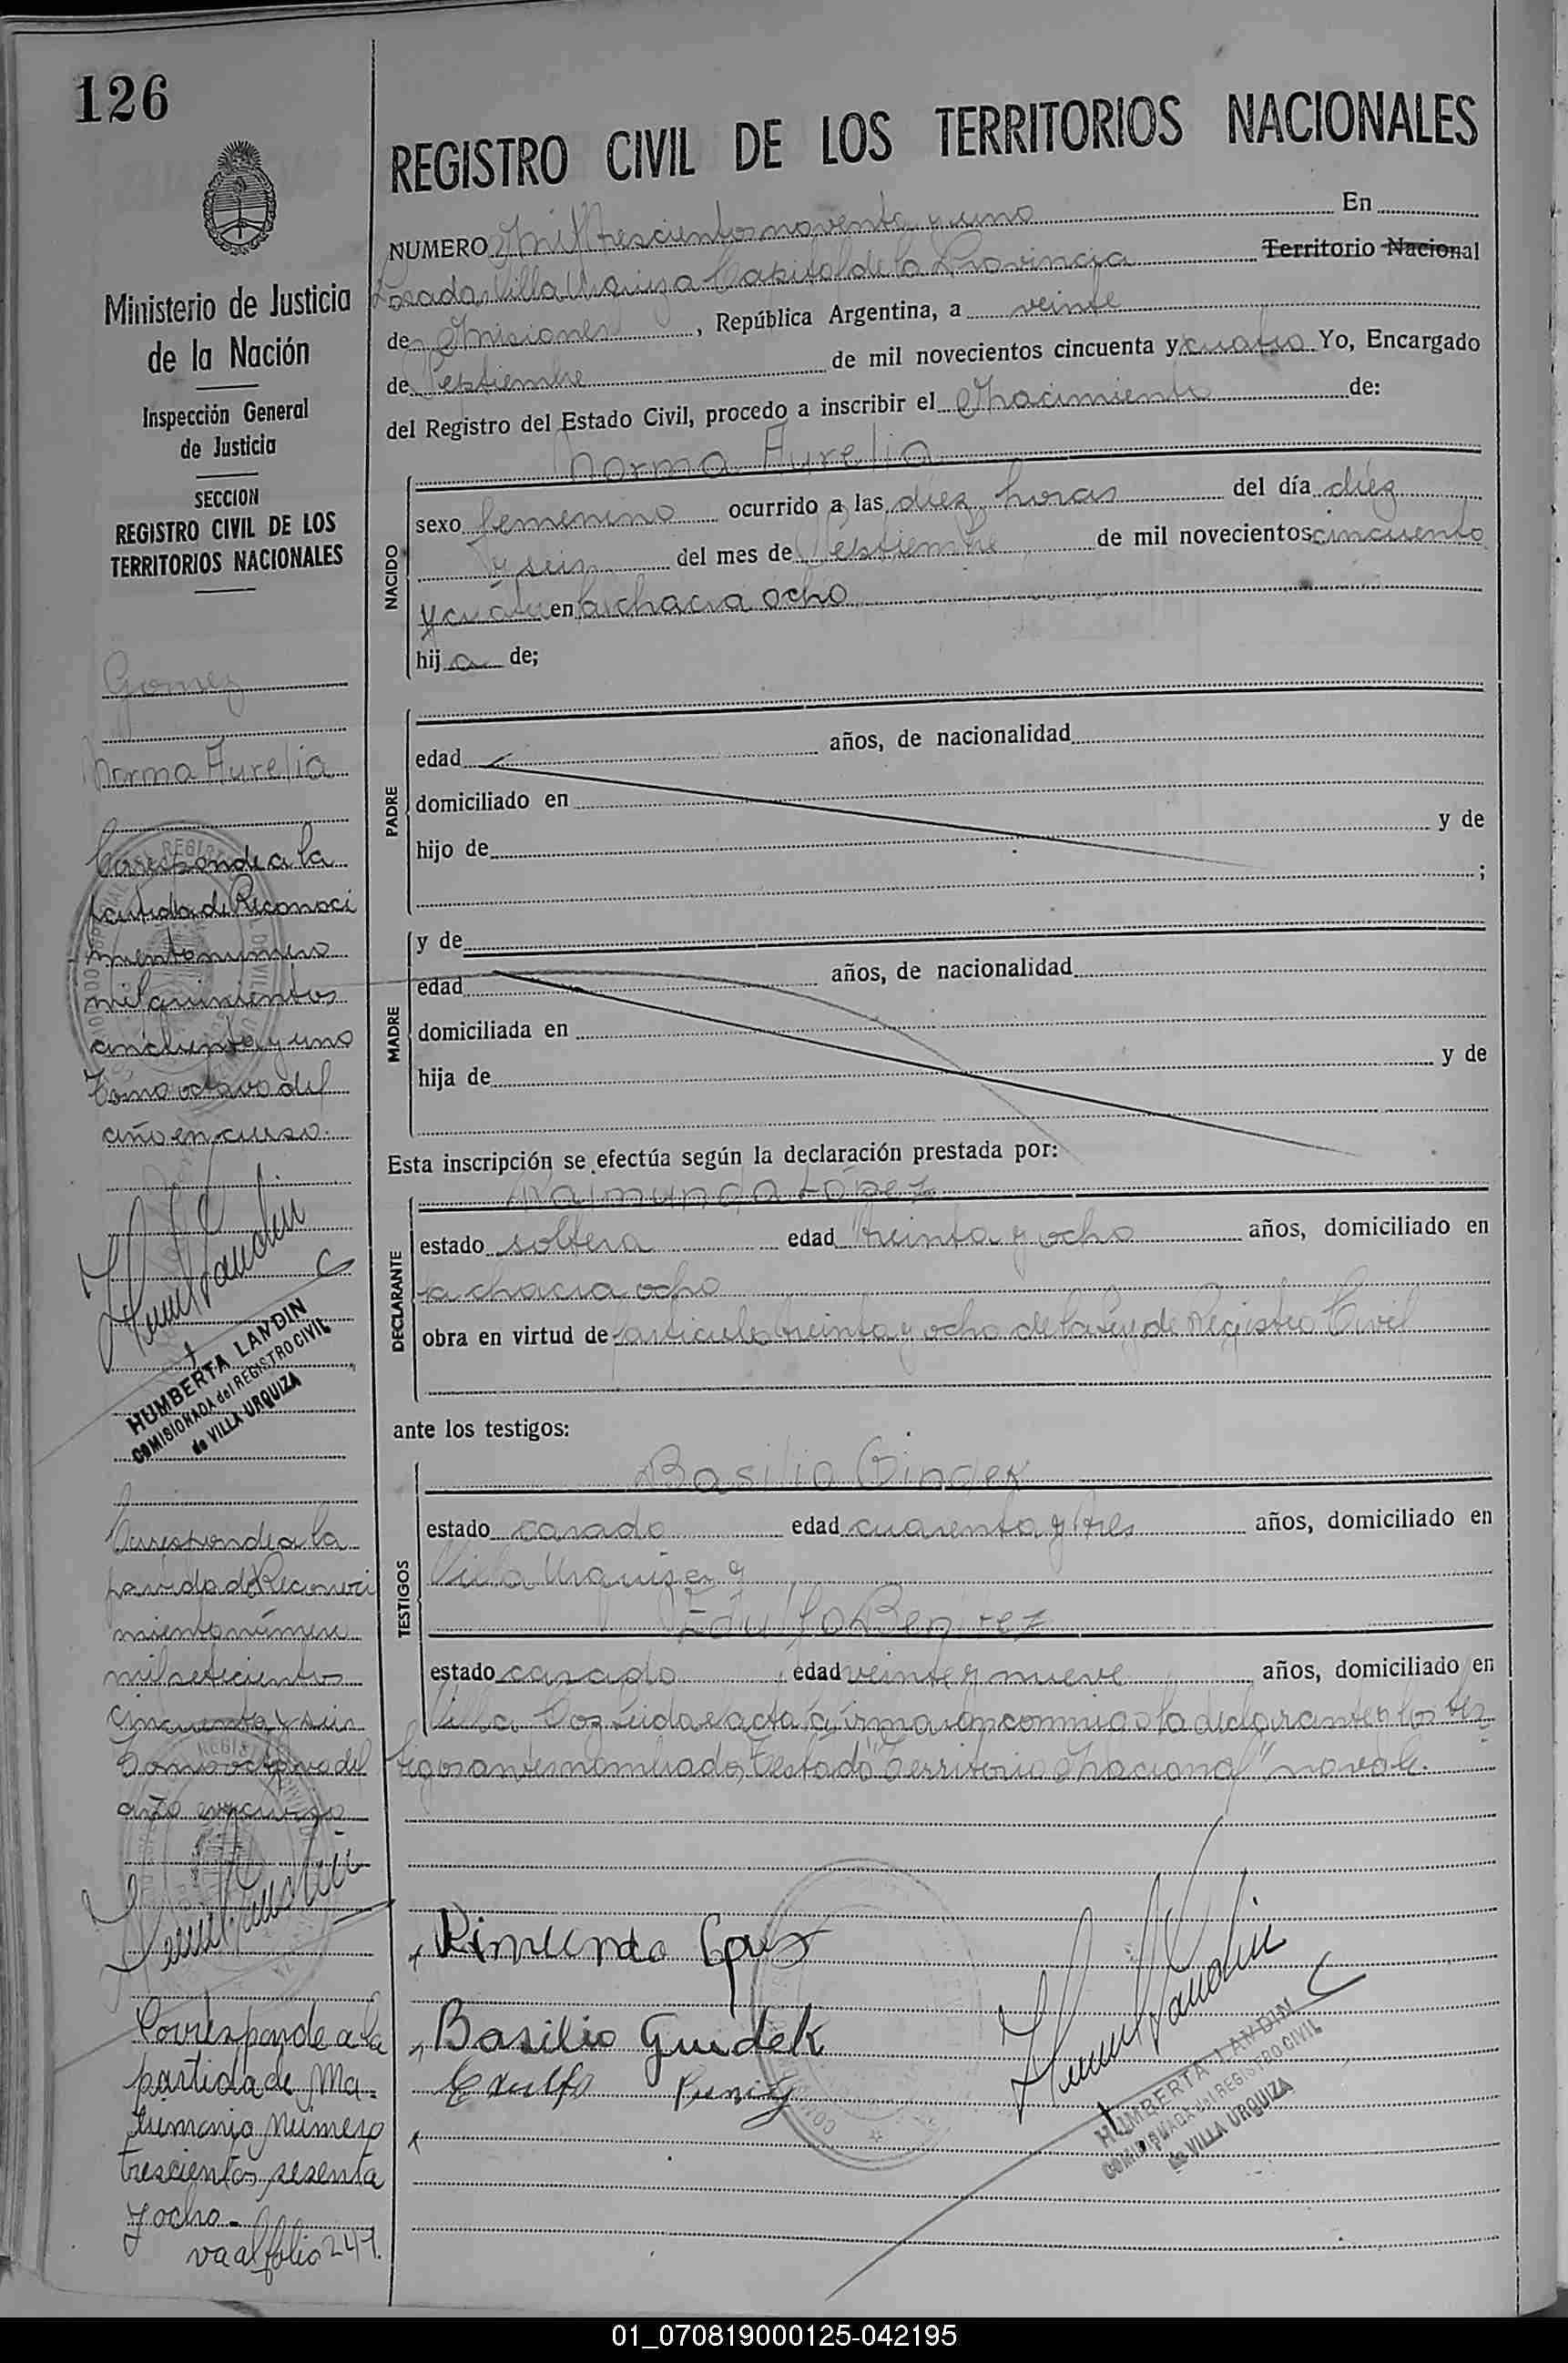 126
Ministerio de Justicia
de la Nación
Inspección General
de Justicia
SECCION
REGISTRO CIVIL DE LOS
TERRITORIOS NACIONALES
Gomez
Norma Aurelia
Corresponde a la
partida de Reconoci
miento numero
mil quinientos
cincuenta y uno
Tomo octavo del
año en curso.
HUMBERTA LANDIN
COMISIONADA del REGISTRO CIVIL
de VILLA URQUIZA
Corresponde a la
partida de Reconoci
miento número
mil setecientos
cincuenta y seis
Tomo octavo del
año en curso
Corresponde a la
partida de Ma-
trimonio Número
trescientos sesenta
y ocho-
va al folio 247.
REGISTRO CIVIL DE LOS TERRITORIOS NACIONALES
NUMERO Mil trescientos noventa y uno En
Posadas Villa Urquiza Capital de la Provincia Territorio Nacional
de Misiones, República Argentina, a veinte
de Septiembre de mil novecientos cincuenta y cuatro Yo, Encargado
del Registro del Estado Civil, procedo a inscribir el Nacimiento de:
Norma Aurelia
NACIDO
sexo femenino ocurrido a las diez horas del día diéz
y seis del mes de Septiembre de mil novecientos cincuenta
y cuatro en la chacra ocho
hij a de;
PADRE
edad años, de nacionalidad
domiciliado en
hijo de y de
;
MADRE
y de
edad años, de nacionalidad
domiciliada en
hija de y de
Esta inscripción se efectúa según la declaración prestada por:
DECLARANTE
Raimunda López
estado soltera edad treinta y ocho años, domiciliado en
la chacra ocho
obra en virtud de articulo treinta y ocho de la Ley de Registro Civil
ante los testigos:
TESTIGOS
Basilio Gindek
estado casado edad cuarenta y tres años, domiciliado en
Villa Urquiza y
Edulfo Benitez
estado casado edad veinte y nueve años, domiciliado en
Villa Leida el acta la firman conmigo la declarante y los tes
tigos antes nombrados Testado "Territorio Nacional" no vale.
Rimunda
Basilio Guidek
Edulfo
HUMBERTA LANDIN
COMISIONADA del REGISTRO CIVIL
de VILLA URQUIZA
01_070819000125-042195